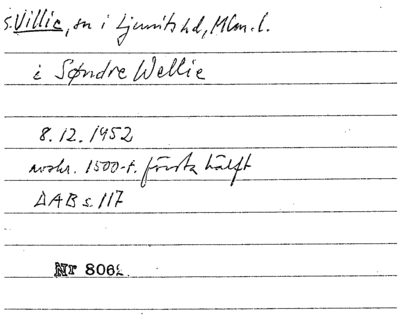 s. Villie, sn i Ljunits hd, MCm. l.
i Søndre Wellie
8.12.1952
avskr. 1500-t. första hälft
DAB s. 117
Nr 8062.